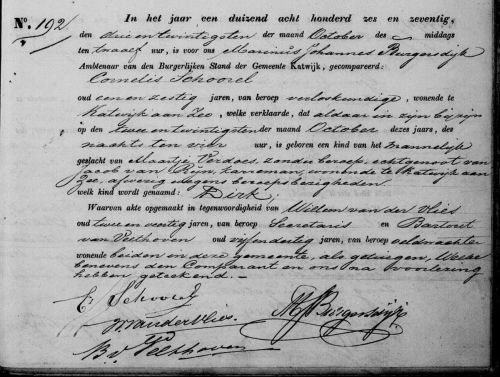 No. 192/
In het jaar een duizend acht honderd zes en zeventig,
den drie en twintigsten der maand October des middags
ten twaalf ure, is voor ons Marinus Johannes Burgersdijk
Ambtenaar van den Burgerlijken Stand der Gemeente Katwijk, gecompareerd:
Cornelis Schoorel
oud een en zestig jaren, van beroep verloskundige, wonende te
Katwijk aan Zee, welke verklaarde, dat aldaar in zijn bijzijn
op den twee en twintigsten der maand October dezes jaars, des
nachts ten vier ure, is geboren een kind van het mannelijk
geslacht van Maartje Verdoes, zonder beroep, echtgenoot van
Jacob van Rijn, zeeman, wonende te Katwijk aan
Zee, afwezig wegens beroepsbezigheden
welk kind wordt genaamd: Dirk
Waarvan akte opgemaakt in tegenwoordigheid van Willem van der Vlies
oud twee en veertig jaren, van beroep Secretaris en Bartout
van Velthoven oud vijfendertig jaren, van beroep veldwachter
wonende beiden in deze gemeente, als getuigen, Welke
benevens den Comparant en ons na voorlezing
hebben getekend.
C. Schoorel
W. van der Vlies. MJBurgersdijk
B. v. Velthoven